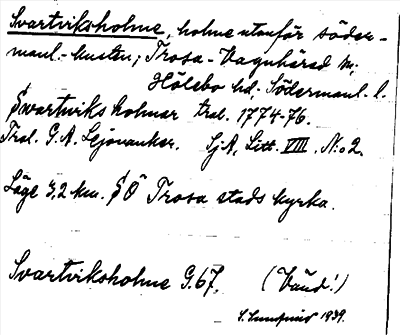 Svartviksholme, holme utanför söder-
manl.-kusten; Trosa-Vagnhärad sn;
Hölebo hd. Södermanl. l.
Swartwiks holmar Gral. 1774-76.
Gral. G.A. Lejonanker. SjA, Litt. VIII. N:o 2.
Läge 3,2 km. SO Trosa stads kyrka.
Svartviksholme G.67. (Vänd!)
1939.